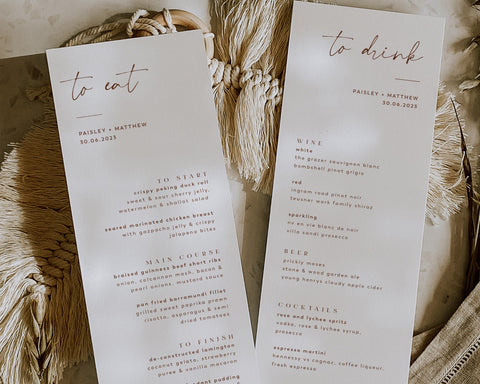 to eat
PAISLEY + MATTHEW
30.06.2025
TO START
crispy peking duck roll
sweet & sour cherry jelly,
watermelon & shallot salad
seared marinated chicken breast
with gazpacho jelly & crispy
jalapeno bites
MAIN COURSE
braised guinness beef short ribs
onion, calcannon mash, bacon &
pearl onions, mustard sauce
pan fried barramundi fillet
grilled sweet paprika prawn
risotto, asparagus & semi
dried tomatoes
TO FINISH
de-constructed lamington
white chocolate, strawberry
puree & vanilla macaron
pudding
to drink
PAISLEY + MATTHEW
30.06.2025
WINE
white
the grazer sauvignon blanc
bombshell pinot grigio
red
ingram road pinot noir
teusner wark family shiraz
sparkling
nv dien blanc
villa sandi prosecco
BEER
prickly moses
stone & wood garden ale
young henrys cloudy apple cider
COCKTAILS
rose and lychee spritz
vodka, rose & lychee syrup,
prosecco
espresso martini
hennesty vs cognac, coffee liqueur,
fresh espresso